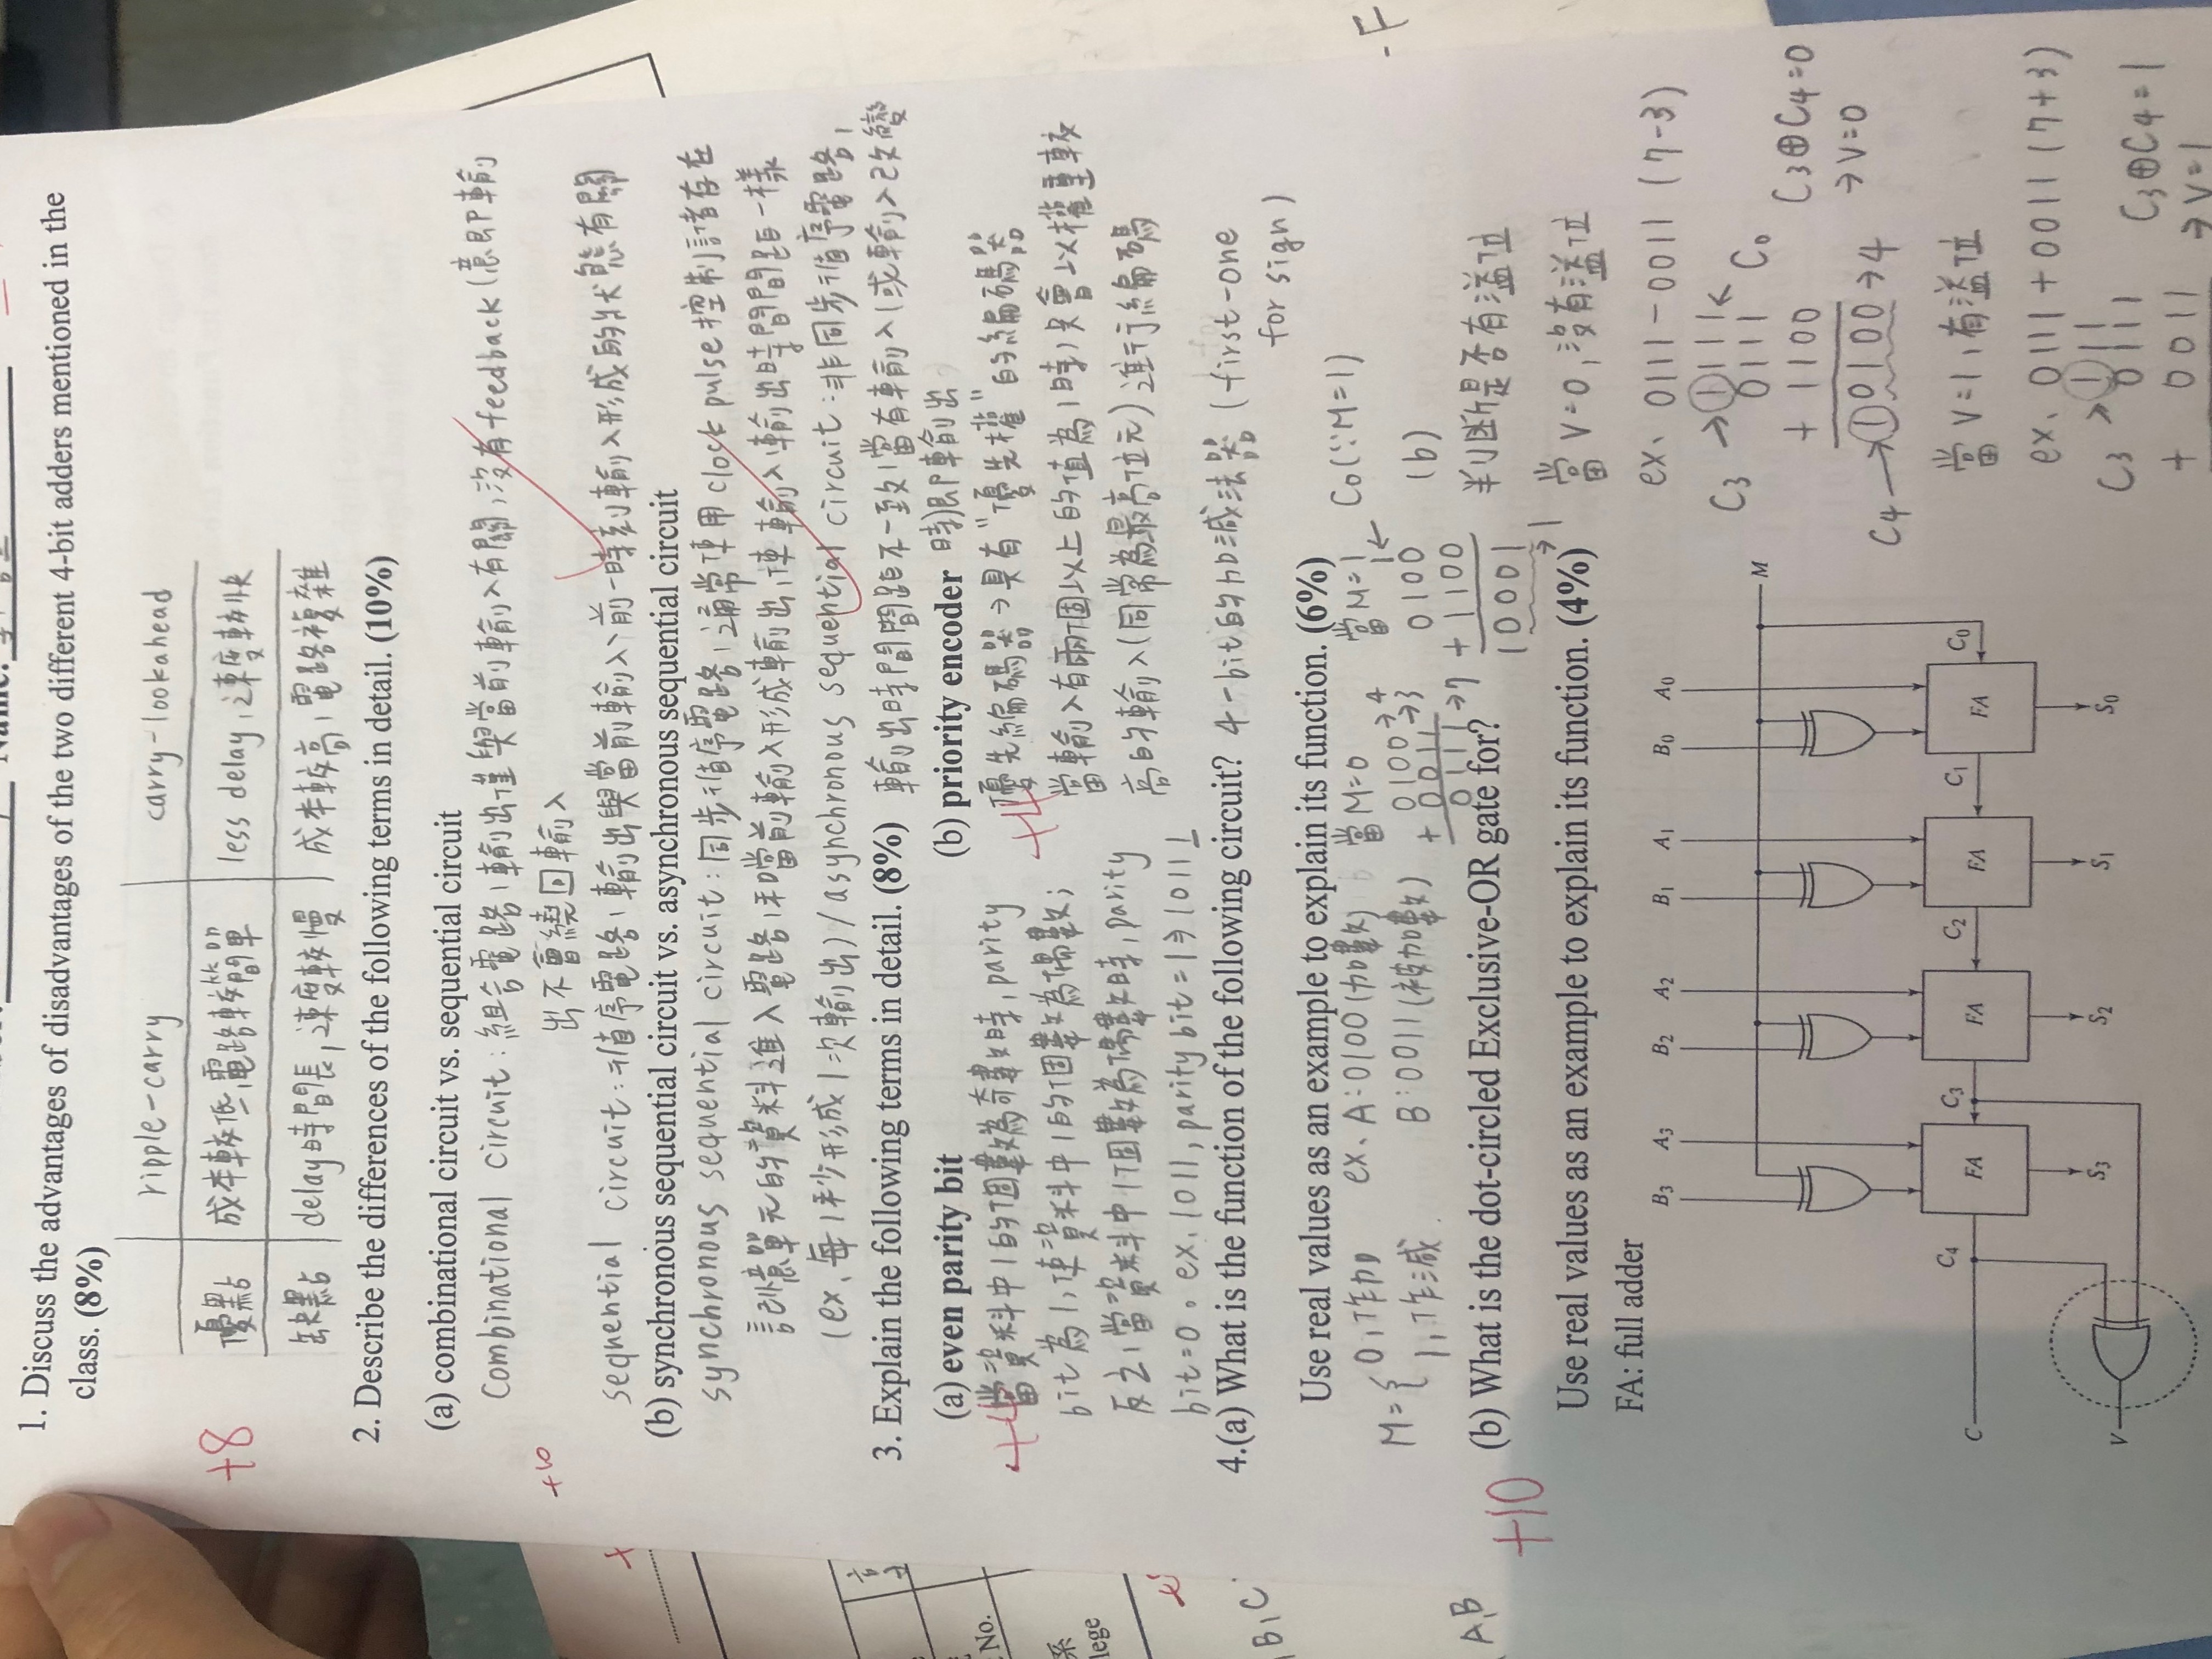 Name:
1. Discuss the advantages of disadvantages of the two different 4-bit adders mentioned in the
class. (8%)
ripple-carry carry-lookahead
+8
優點 成本較低,電路較簡單 less delay,速度較快
缺點 delay時間長,速度較慢 成本較高,電路複雜
2. Describe the differences of the following terms in detail. (10%)
(a) combinational circuit vs. sequential circuit
Combinational circuit:組合電路,輸出僅與當前輸入有關,沒有feedback(意即輸
+10
出不會繞回輸入
sequential circuit:循序電路,輸出與當前輸入、前一時刻輸入形成的狀態有關
(b) synchronous sequential circuit vs. asynchronous sequential circuit
synchronous sequential circuit:同步循序電路,通常使用clock pulse控制儲存在
記憶單元的資料進入電路,和當前輸入形成輸出,使輸入輸出時間間距一樣
(ex、每1秒形成1次輸出)/asynchronous sequential circuit:非同步循序電路,
3. Explain the following terms in detail. (8%) 輸出時間間距不一致,當有輸入(或輸入改變
(a) even parity bit (b) priority encoder 時)即輸出
+4 當資料中1的個數為奇數時,parity
bit為1,使資料中1的個數為偶數;
反之,當資料中1個數為偶數時,parity
bit=0。ex. 1011, parity bit=1⇒10111
+4 優先編碼器→具有"優先權"的編碼器
當輸入有兩個以上的值為1時,只會以權重較
高的輸入(同常為最高位元)進行編碼
4.(a) What is the function of the following circuit? 4-bit的加減法器 (first-one
for sign)
Use real values as an example to explain its function. (6%)
M={ 0,作加
1,作減
ex、A:0100(加數)
B:0011(被加數)
當M=0
0100→4
+ 0011→3
0111→7
當M=1
1← C0(∵M=1)
0100
+ 1100
10001
→1
+10
(b) What is the dot-circled Exclusive-OR gate for?
Use real values as an example to explain its function. (4%)
(b)
判斷是否有溢位
當V=0,沒有溢位
ex、0111-0011 (7-3)
C3→1111← C0
0111
+ 1100
C4→10100→4
C3⊕C4=0
→V=0
當V=1,有溢位
ex、0111+0011(7+3)
C3→111
0111
+ 0011
C3⊕C4=1
→V=1
FA: full adder
B3 A3 B2 A2 B1 A1 B0 A0
M
C4 C3 C2 C1 C0
C FA FA FA FA
S3 S2 S1 S0
V
No.
系
lege
B,C
A,B
-F